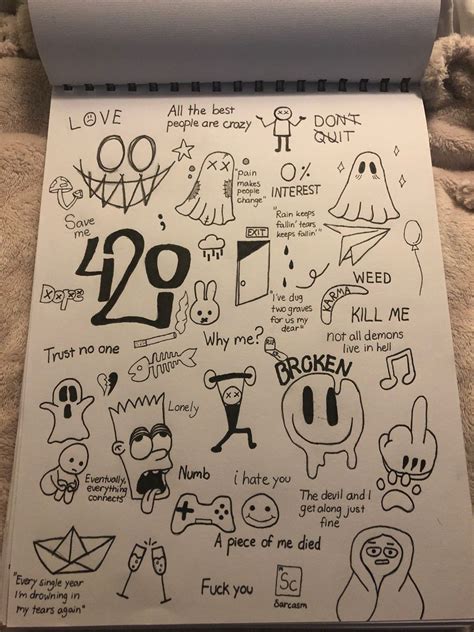 LOVE
All the best
people are crazy
DON'T
QUIT
"Pain
makes
people
change"
0%
INTEREST
Save
me
"Rain keeps
fallin' tears
keeps fallin'"
420
EXIT
WEED
KARMA
KILL ME
"I've dug
two graves
for us my
dear"
not all demons
live in hell
Trust no one
Why me?
BROKEN
Lonely
Eventually,
everything
connects"
Numb
i hate you
The devil and I
get along just
fine
A piece of me died
"Every single year
I'm drowning in
my tears again"
Fuck you
Sc
Sarcasm